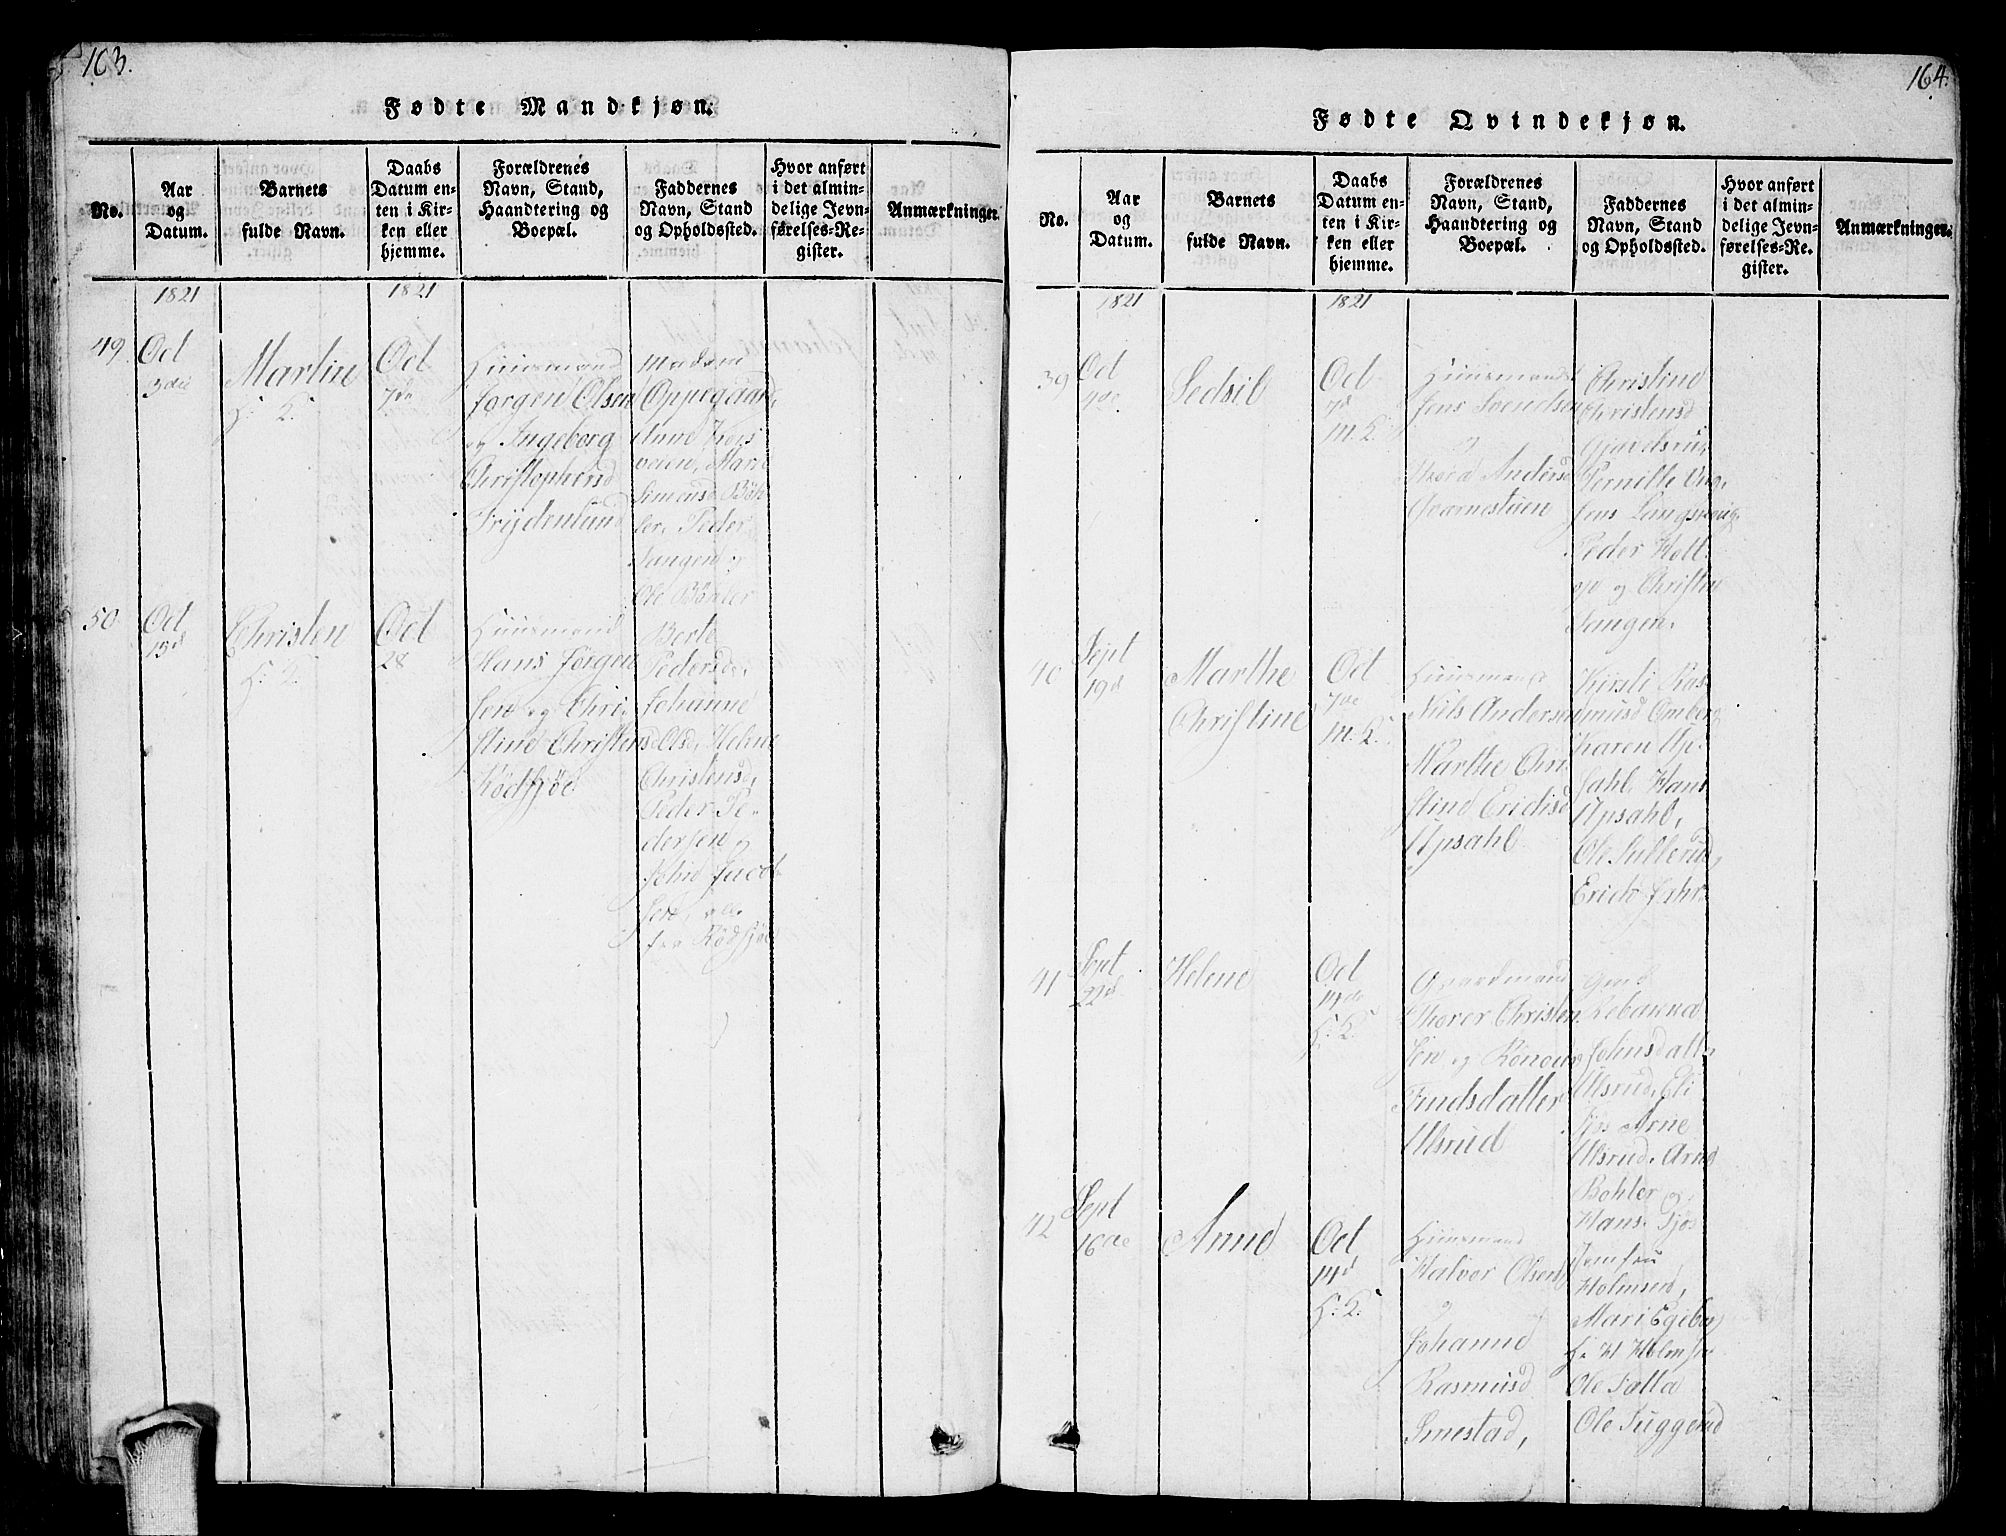 163.
Fødte Mandkjøn.
No.
Aar
og
Datum.
Barnets
fulde Navn.
Daabs
Datum en-
ten i Kir-
ken eller
hjemme.
Forældrenes
Navn, Stand,
Haandtering og
Boepæl.
Faddernes
Navn, Stand
og Opholdssted.
Hvor anført
i det almin-
delige Jevn-
førelses-Re-
gister.
Anmærkninger.
1821
1821
49
Oct
3die
Martin
H: K.
Oct
7de
Huusmand
Jørgen Olsen
og Ingeborg
Christophersd
Frydenlund
Madam
Oppegaard,
Anne Kors
veien, Marie
Simensd Böh
ler, Peder
Tangen og
Ole Böhler
50
Oct
15d
Christen
H: K.
Oct
28
Huusmand
Hans Jörgen
sen og Chri
stine Christensd
Rödsjöe
Berte
Pedersd,
Johanne
Olsd, Helene
Christensd,
Peder Pe-
dersen og
John Jacob
sen, alle
fra Rödsjöe
164.
Fødte Qvindekjøn.
No.
Aar
og
Datum.
Barnets
fulde Navn.
Daabs
Datum en-
ten i Kir-
ken eller
hjemme.
Forældrenes
Navn, Stand,
Haandtering og
Boepæl.
Faddernes
Navn, Stand
og Opholdssted.
Hvor anført
i det almin-
delige Jevn-
førelses-Re-
gister.
Anmærkninger.
1821
1821
39
Oct
Sedsil
Oct
7d
M. K.
Huusmand
Jens Svendsen
og
Andersd
Qværnestuen
Christine
Christensd
Pernille
Jens
Peder Holt
og Christen
Tangen.
40
Sept
19d
Marthe
Christine
Oct
7de
M. K.
Huusmand
Nils Andersen
Marthe Chri
stine Erichsd
Upsahl
Kirsti Ras
musd Omberg
Karen Up-
sahl, Hans
Upsahl,
Ole Sullerud,
Erich
41
Sept
22d
Helene
Oct
14de
H: K.
Gaardmand
Thorer Christen
sen og Rönour
Findsdatter
Ulsrud
Johnsdatter
Ulsrud, Eli
Arne
Ulsrud, Arne
Bohler og
Hans
42
Sept
16de
Anne
Oct
14d
H: K.
Huusmand
Halvor Olsen
og
Johanne
Rasmusd
Smestad,
Jomfru
Holmsen,
Mari Egeberg
Hr Holmsen
Ole
Ole Tuggerud